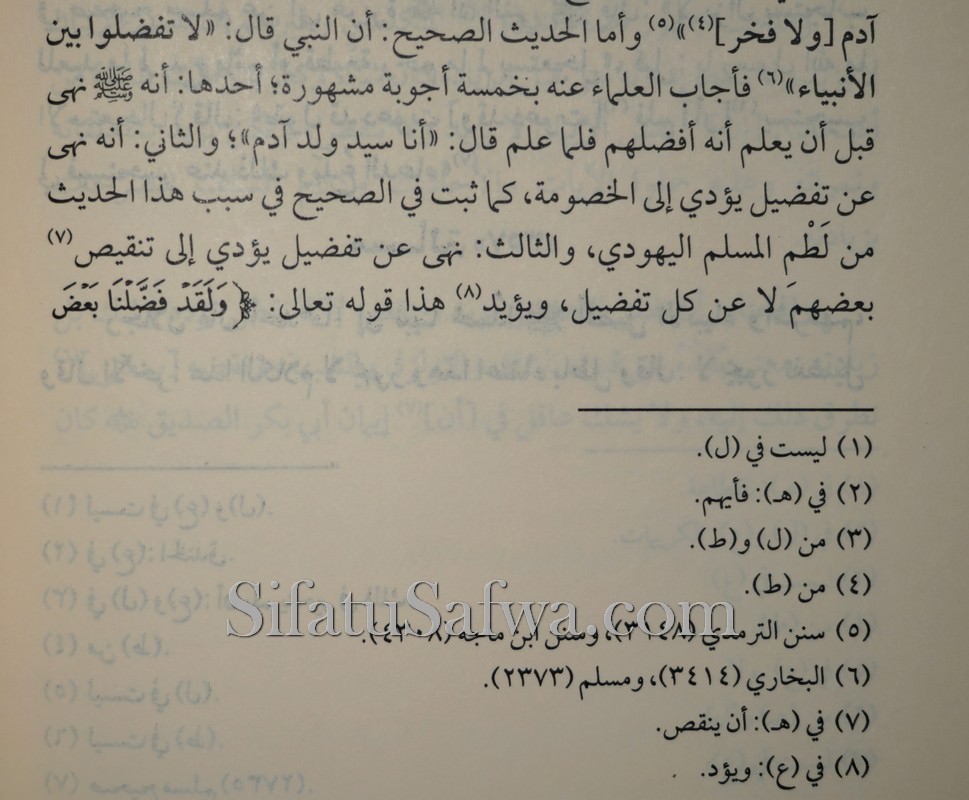 آدم [ولا فخر](٤)»(٥) وأما الحديث الصحيح: أن النبي قال: «لا تفضلوا بين
الأنبياء»(٦) فأجاب العلماء عنه بخمسة أجوبة مشهورة؛ أحدها: أنه ﷺ نهى
قبل أن يعلم أنه أفضلهم فلما علم قال: «أنا سيد ولد آدم»؛ والثاني: أنه نهى
عن تفضيل يؤدي إلى الخصومة، كما ثبت في الصحيح في سبب هذا الحديث
من لَطْمِ المسلم اليهودي، والثالث: نهى عن تفضيل يؤدي إلى تنقيص(٧)
بعضهمَ لا عن كل تفضيل، ويؤيد(٨) هذا قوله تعالى: ﴿وَلَقَدْ فَضَّلْنَا بَعْضَ
(١) ليست في (ل).
(٢) في (هـ): فأيهم.
(٣) من (ل) و(ط).
(٤) من (ط).
(٥) سنن الترمذي (٣١٤٨)، وسنن ابن ماجه (٤٣٠٨).
(٦) البخاري (٣٤١٤)، ومسلم (٢٣٧٣).
(٧) في (هـ): أن ينقص.
(٨) في (ع): ويؤد.
SifatuSafwa.com